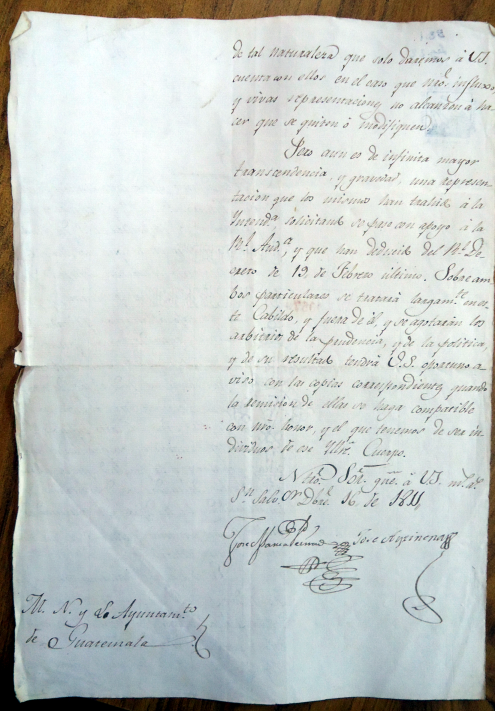 de tal naturaleza que solo daremos á VS.
cuenta con ellos en el caso que nro. influxo,
y vivas representaciones no alcancen á ha
cer que se quiten ó modifiquen.
Pero aun es de infinita mayor
transcendencia, y gravedad, una represen
tacion que los mismos han trahido á la
Intenda. solicitando se pase con apoyo á la
Rl. Auda., y que han deducido del Rl. De
creto de 19 de Febrero ultimo. Sobre am
bos particulares se tratará largamte. en es
te Cabildo, y fuera de él, y se agotarán los
arbitrios de la prudencia, y de la politica,
y de su resultado tendrá V.S. oportuno a
viso con las copias correspondientes, quando
la remision de ellas se haga compatible
con nro. honor, y el que tenemos de ser in
dividuos de ese Illre. Cuerpo.
Ntro. Sor. gue. á VS. ms. as.
Sn. Salvor. Dbre. 16, de 1811,
José Aycinena
M. N. y L. Ayuntamto.
de Guatemala